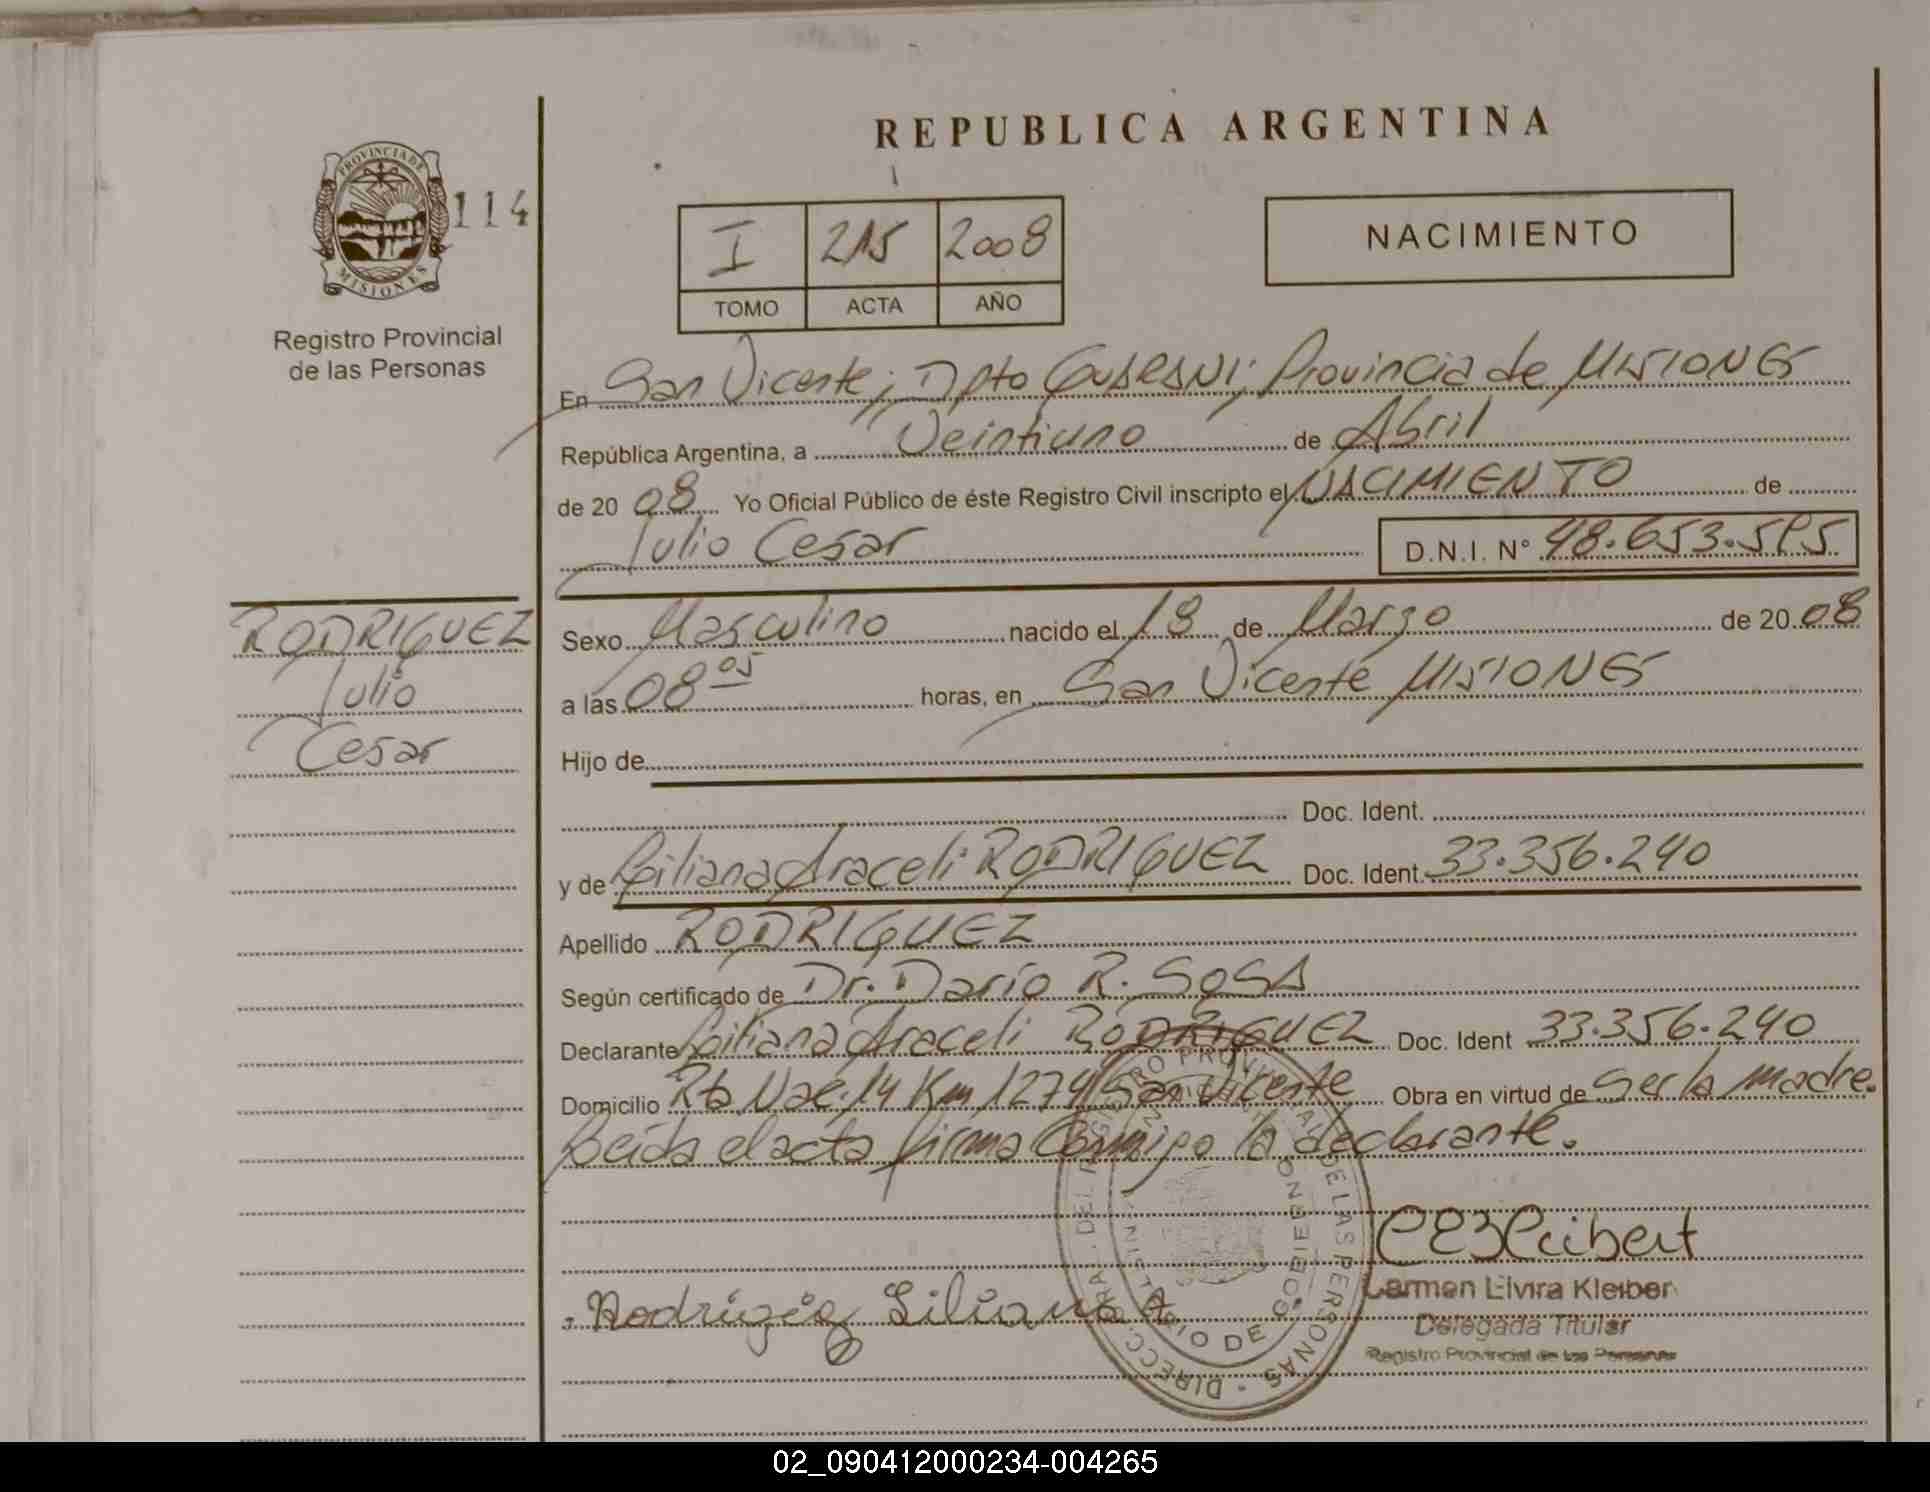 REPUBLICA ARGENTINA
PROVINCIA DE
MISIONES
114
Registro Provincial
de las Personas
I 215 2008
TOMO ACTA AÑO
NACIMIENTO
En San Vicente; Dpto GUARANI; Provincia de MISIONES
República Argentina, a Veintiuno de Abril
de 20 08 Yo Oficial Público de éste Registro Civil inscripto el NACIMIENTO de
Julio Cesar D.N.I. N° 48.653.515
RODRIGUEZ
Julio
Cesar
Sexo Masculino nacido el 18 de Marzo de 20 08
a las 08 05 horas, en San Vicente MISIONES
Hijo de
Doc. Ident.
y de Liliana Araceli RODRIGUEZ Doc. Ident. 33.356.240
Apellido RODRIGUEZ
Según certificado de Dr. Darío R. SOSA
Declarante Liliana Araceli RODRIGUEZ Doc. Ident 33.356.240
Domicilio Rta Nac. 14 Km 1279 San Vicente Obra en virtud de Ser la madre.
Leída el acta firma Conmigo la declarante.
Rodriguez Liliana A
Carmen Elvira Kleiber
Delegada Titular
Registro Provincial de las Personas
02_090412000234-004265